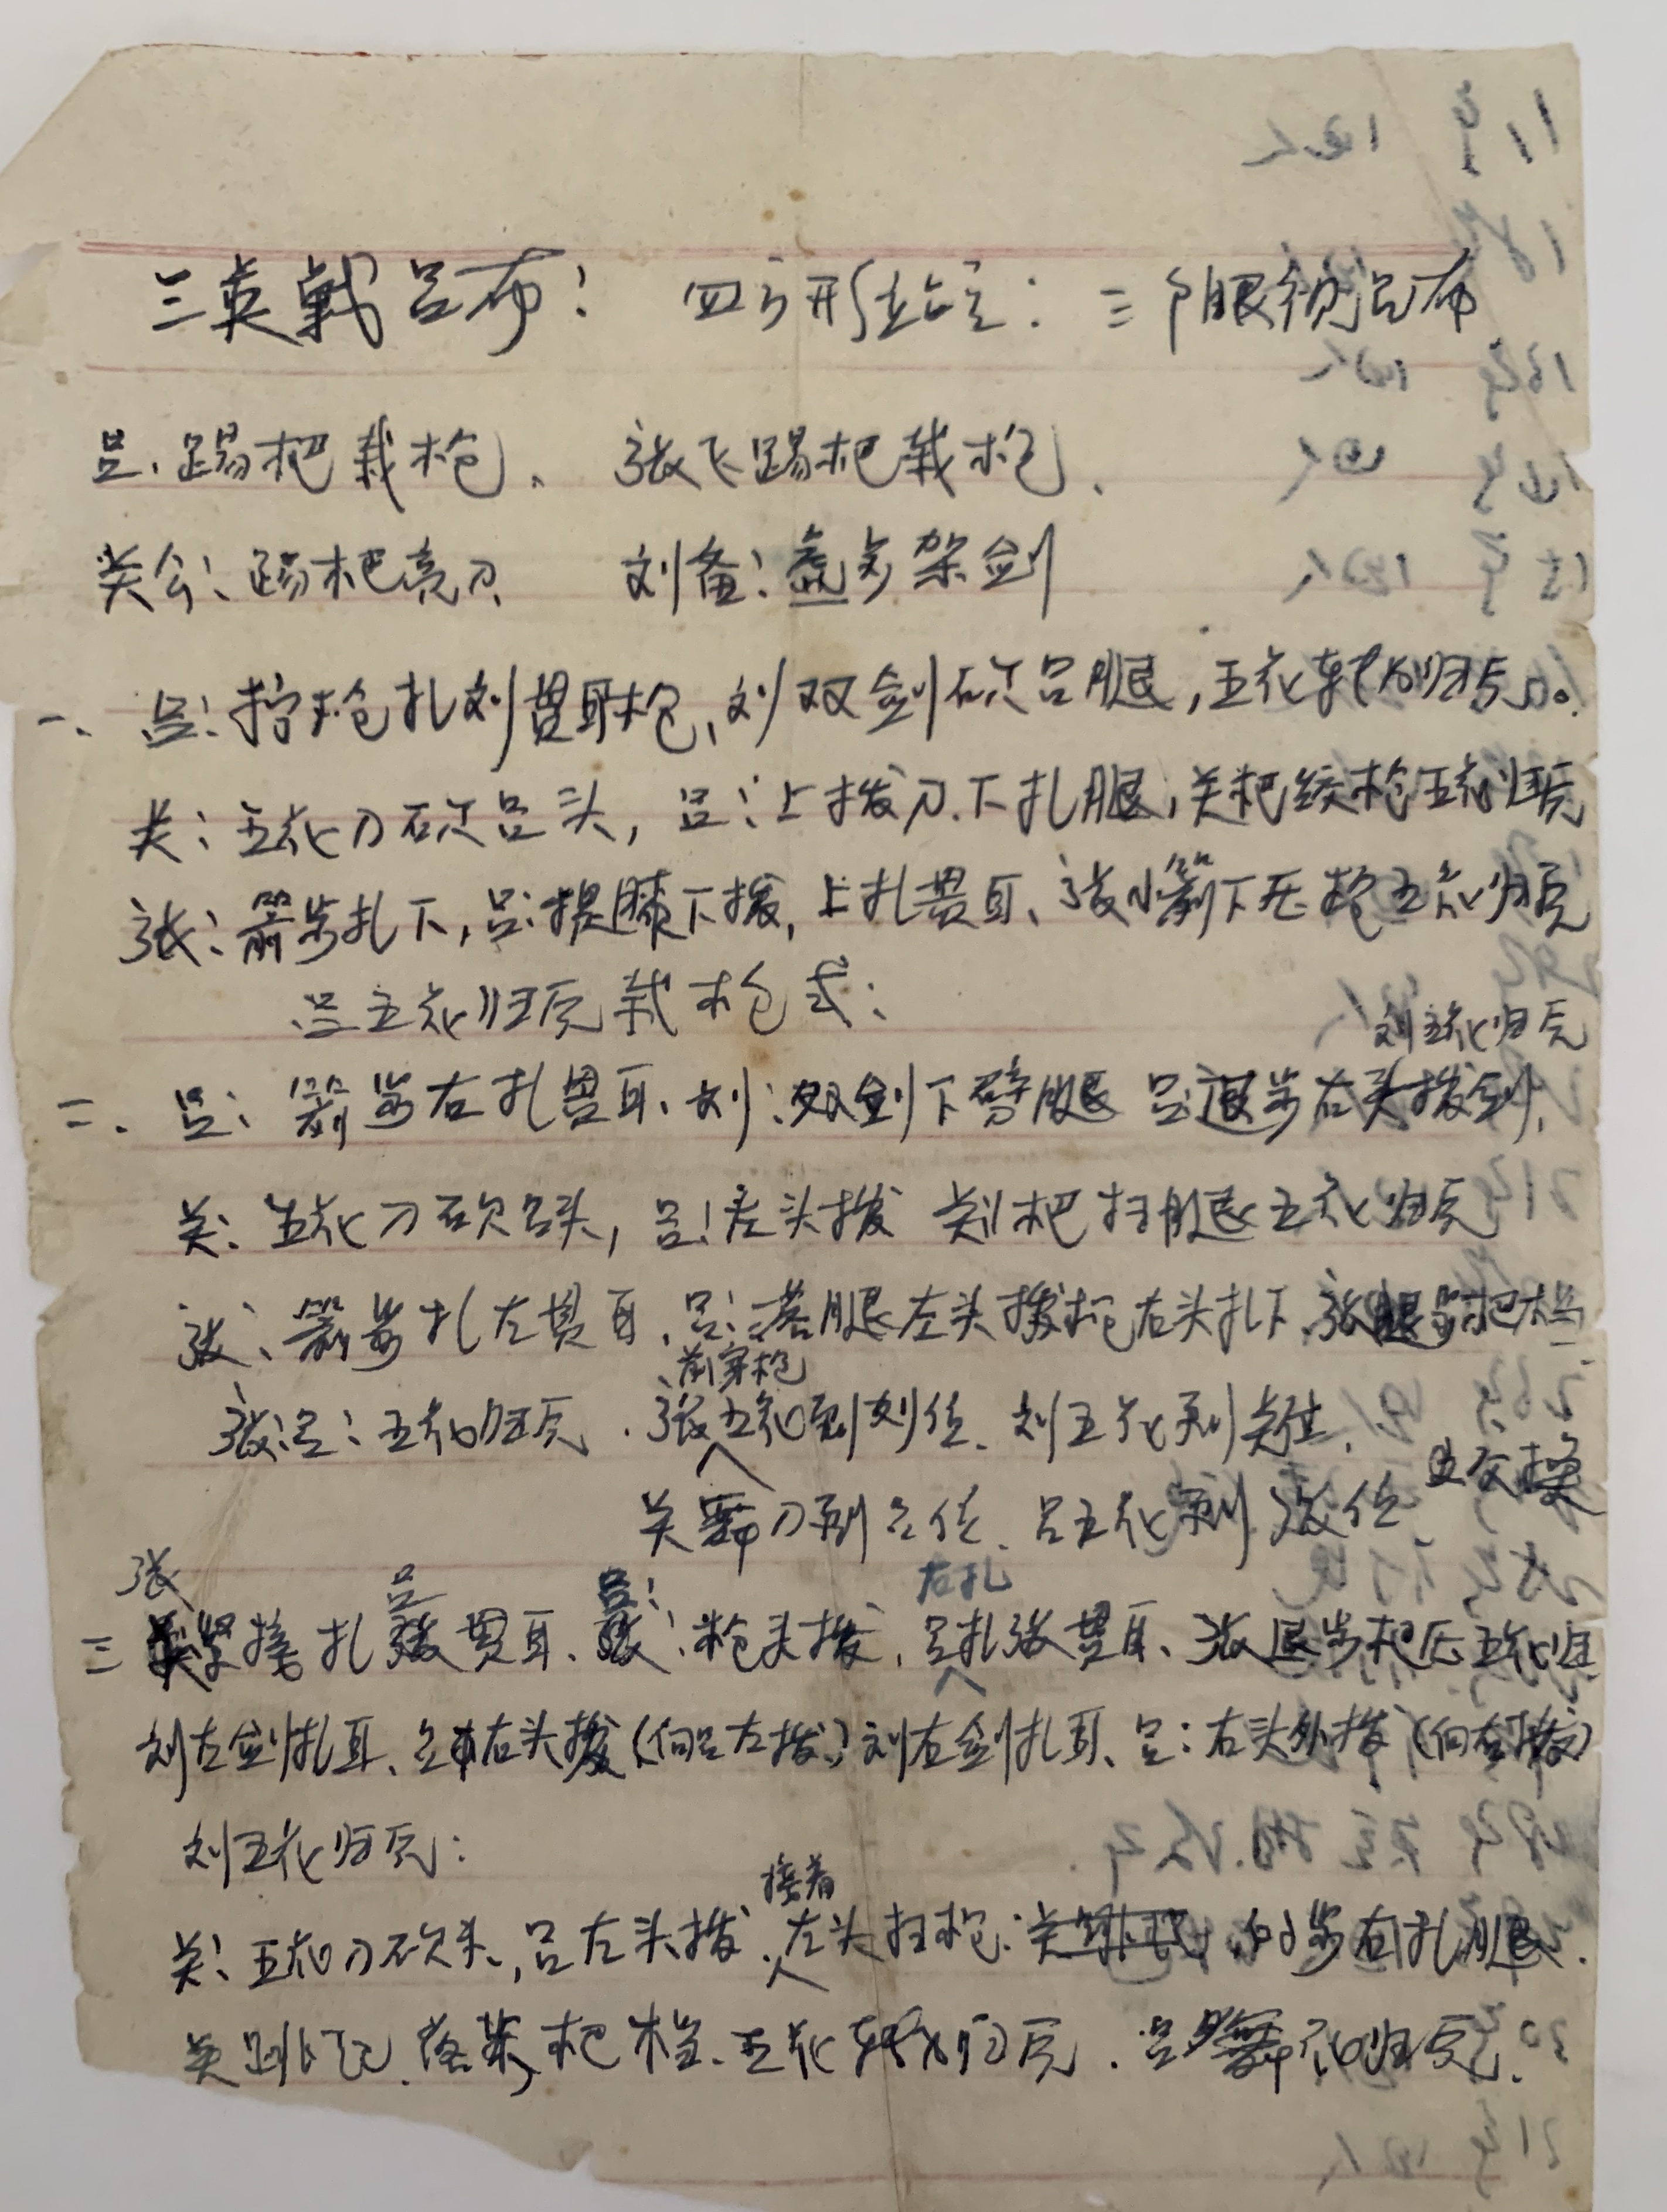 三英战吕布：　四方形站定：三个眼瞅吕布
吕、踢把栽枪、　张飞踢把栽枪、
关公、踢把亮刀　刘备：虚步架剑
一、吕：拧枪扎刘贯耳枪、刘双剑砍吕腿，五花转身归元。
关：五花刀砍吕头，吕：上拨刀、下扎腿，关把绞枪五花归元
张：箭步扎下，吕：提膝下拨，上扎贯耳、张小箭下压枪五花归元
吕五花归元栽枪式：
刘五花归元
二、吕：箭步右扎贯耳、刘：双剑下劈腿 吕退步右头拨剑，
关：五花刀砍吕头，吕：左头拨 关把扫腿五花归元
张、箭步扎左贯耳、吕：落腿左头拨枪右头扎下、张退步把挡
前穿枪
张吕：五花归元．张五花到刘位、刘五花到关位、
互交换
关舞刀到吕位、吕五花到张位
张　吕　吕：　右扎
三 紧接扎贯耳、枪头拨，吕扎张贯耳、张退步把压五花归
刘左剑扎耳、吕右头拨（向吕左拨）刘右剑扎耳、吕：右头外拨（向右拨）
刘五花归元：
接着
关：五花刀砍头，吕左头拨、左头扫枪：步右扎腿．
关跳起、落荒把挡、五花转身归元．吕舞花归元．